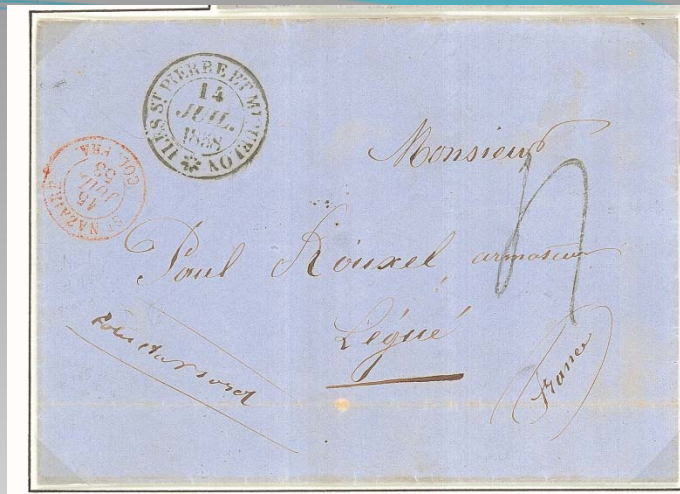 ILES ST PIERRE ET MIQUELON
14
JUIL.
1858
ST NAZAIRE
15
JUIL
58
COL. FRA
Monsieur
Paul Rouxel, armateur
Légué
France